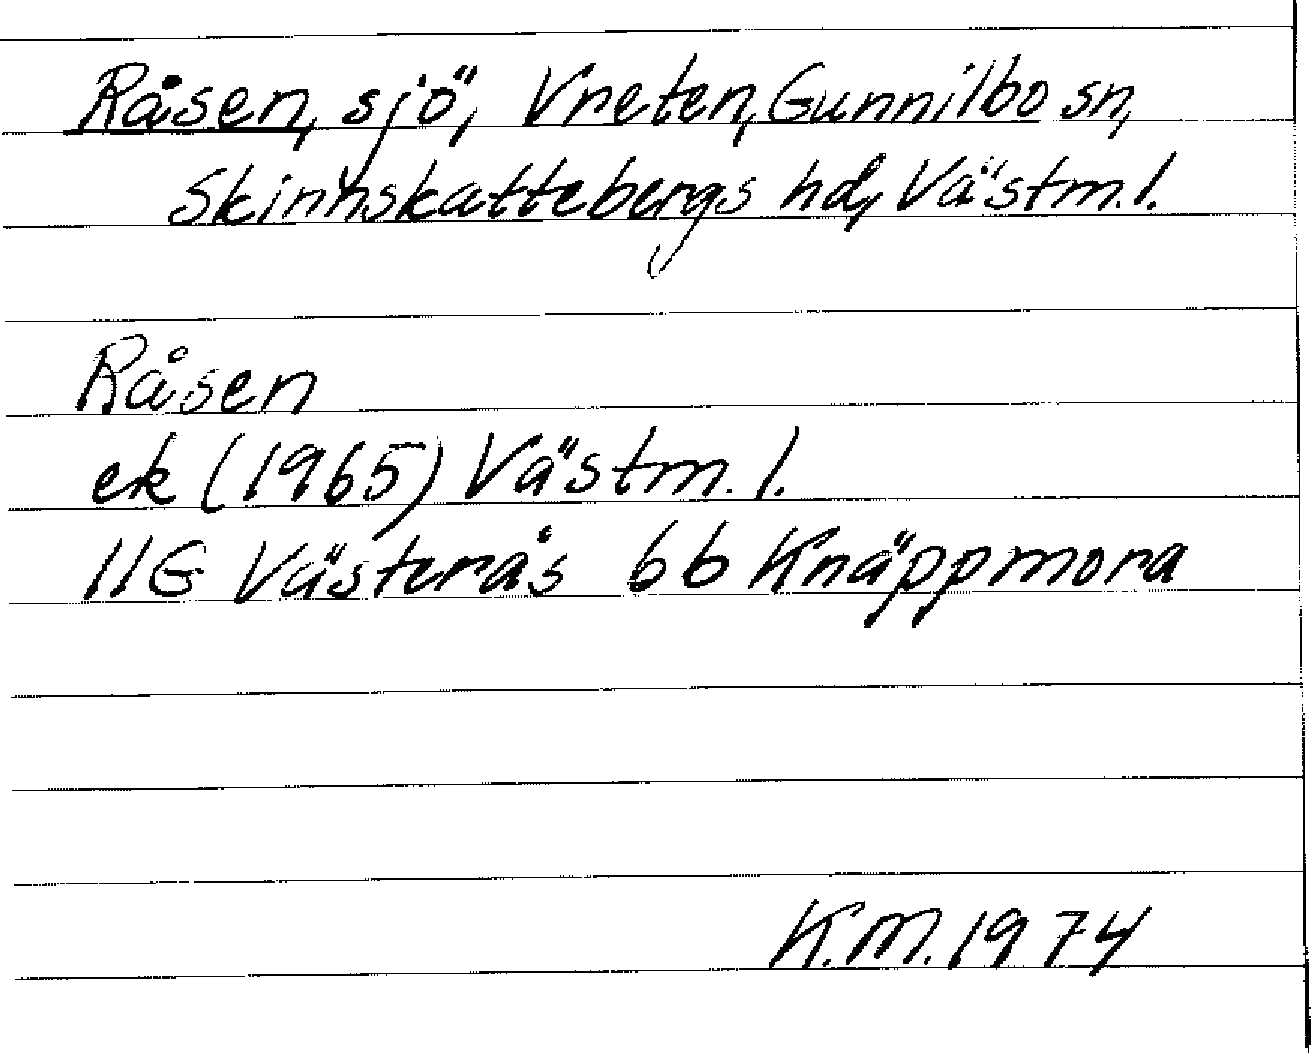 Råsen, sjö, Vreten, Gunnilbo sn,
Skinnskattebergs hd, Västm. l.
Råsen
ek (1965) Västm. l.
11G Västerås 6b Knäppmora
K.M. 1974